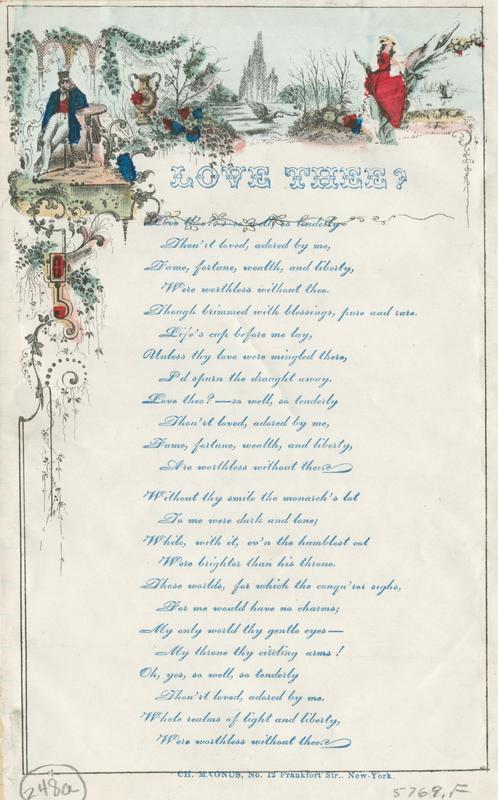 LOVE THEE?
Love thee?—so well, so tenderly
Thou'rt loved, adored by me,
Fame, fortune, wealth, and liberty,
Were worthless without thee.
Though brimmed with blessings, pure and rare.
Life's cup before me lay,
Unless thy love were mingled there,
I'd spurn the draught away.
Love thee?—so well, so tenderly
Thou'rt loved, adored by me,
Fame, fortune, wealth, and liberty,
Are worthless without thee.
Without thy smile the monarch's lot
To me were dark and lone;
While, with it, ev'n the humblest cot
Were brighter than his throne.
Those worlds, for which the conqu'ror sighs,
For me would have no charms;
My only world thy gentle eyes—
My throne thy circling arms!
Oh, yes, so well, so tenderly
Thou'rt loved, adored by me.
Whole realms of light and liberty,
Were worthless without thee.
CH. MAGNUS, No. 12 Frankfort Str., New-York.
248a
5769.F